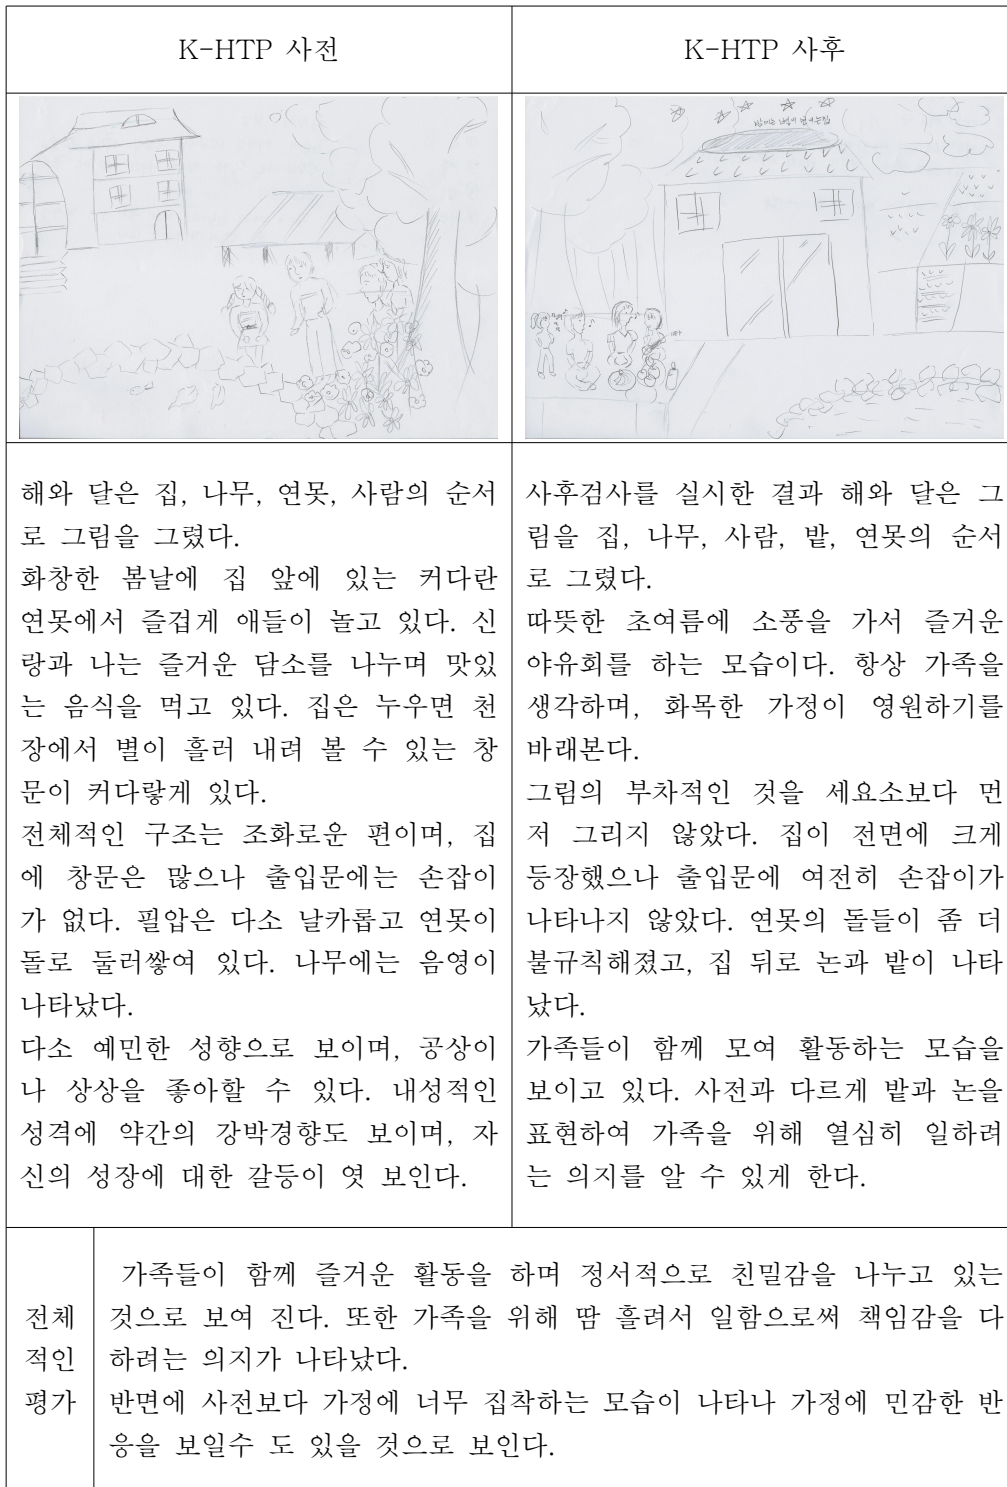 K-HTP 사전
K-HTP 사후
해와 달은 집, 나무, 연못, 사람의 순서
로 그림을 그렸다.
화창한 봄날에 집 앞에 있는 커다란
연못에서 즐겁게 애들이 놀고 있다. 신
랑과 나는 즐거운 담소를 나누며 맛있
는 음식을 먹고 있다. 집은 누우면 천
장에서 별이 흘러 내려 볼 수 있는 창
문이 커다랗게 있다.
전체적인 구조는 조화로운 편이며, 집
에 창문은 많으나 출입문에는 손잡이
가 없다. 필압은 다소 날카롭고 연못이
돌로 둘러쌓여 있다. 나무에는 음영이
나타났다.
다소 예민한 성향으로 보이며, 공상이
나 상상을 좋아할 수 있다. 내성적인
성격에 약간의 강박경향도 보이며, 자
신의 성장에 대한 갈등이 엿 보인다.
사후검사를 실시한 결과 해와 달은 그
림을 집, 나무, 사람, 밭, 연못의 순서
로 그렸다.
따뜻한 초여름에 소풍을 가서 즐거운
야유회를 하는 모습이다. 항상 가족을
생각하며, 화목한 가정이 영원하기를
바래본다.
그림의 부차적인 것을 세요소보다 먼
저 그리지 않았다. 집이 전면에 크게
등장했으나 출입문에 여전히 손잡이가
나타나지 않았다. 연못의 돌들이 좀 더
불규칙해졌고, 집 뒤로 논과 밭이 나타
났다.
가족들이 함께 모여 활동하는 모습을
보이고 있다. 사전과 다르게 밭과 논을
표현하여 가족을 위해 열심히 일하려
는 의지를 알 수 있게 한다.
전체
적인
평가
가족들이 함께 즐거운 활동을 하며 정서적으로 친밀감을 나누고 있는
것으로 보여 진다. 또한 가족을 위해 땀 흘려서 일함으로써 책임감을 다
하려는 의지가 나타났다.
반면에 사전보다 가정에 너무 집착하는 모습이 나타나 가정에 민감한 반
응을 보일수 도 있을 것으로 보인다.